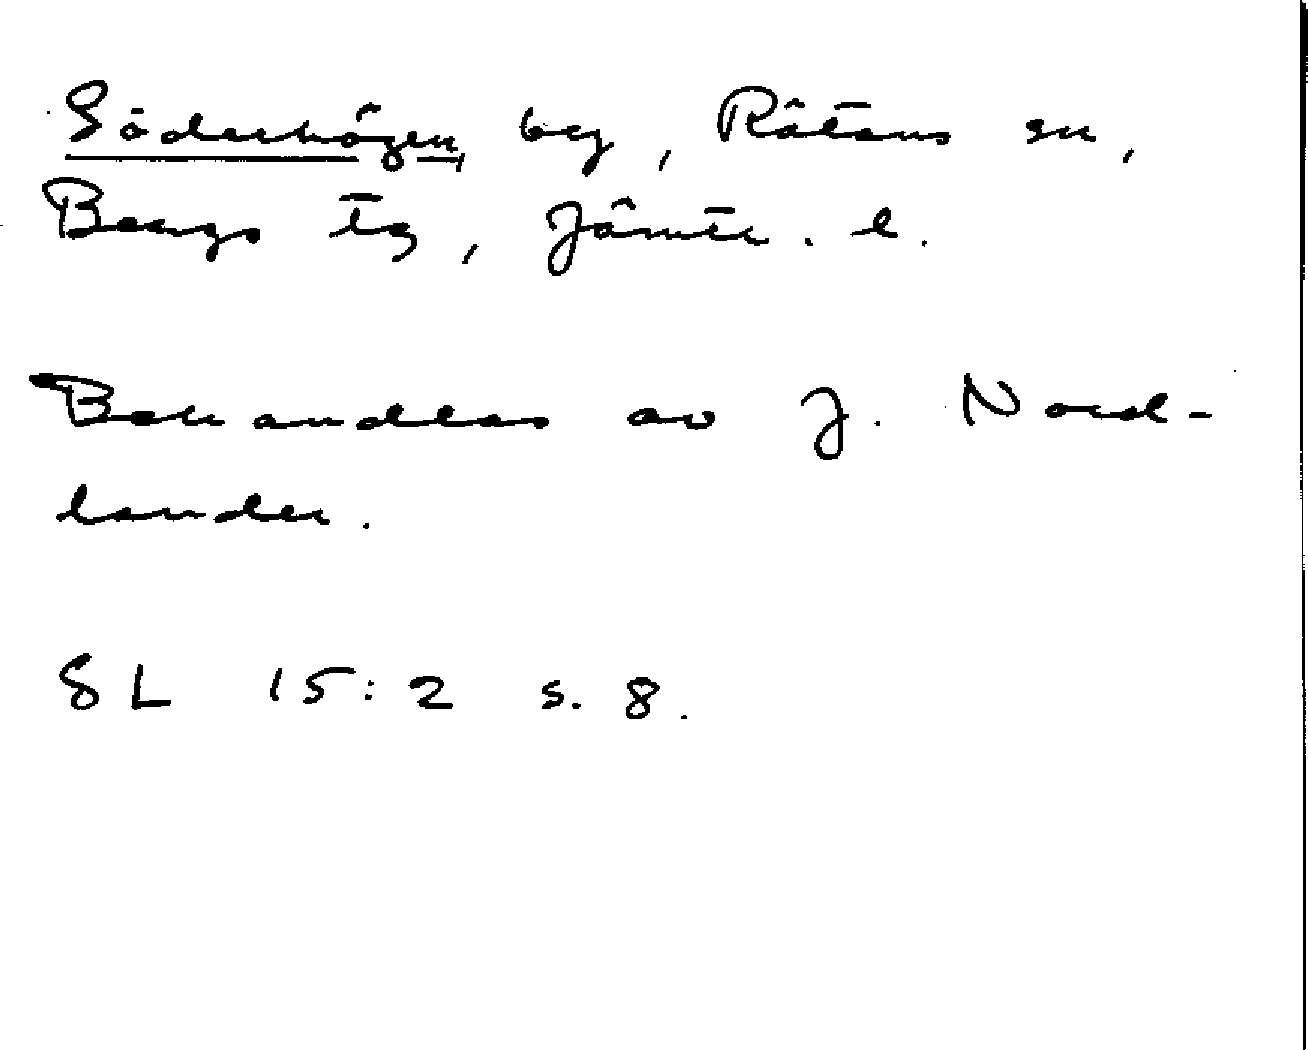 Söderhögen, by, Rätans sn,
Bergs tg, Jämtl. l.
Behandlas av J. Nord-
lander.
SL 15:2 s. 8.